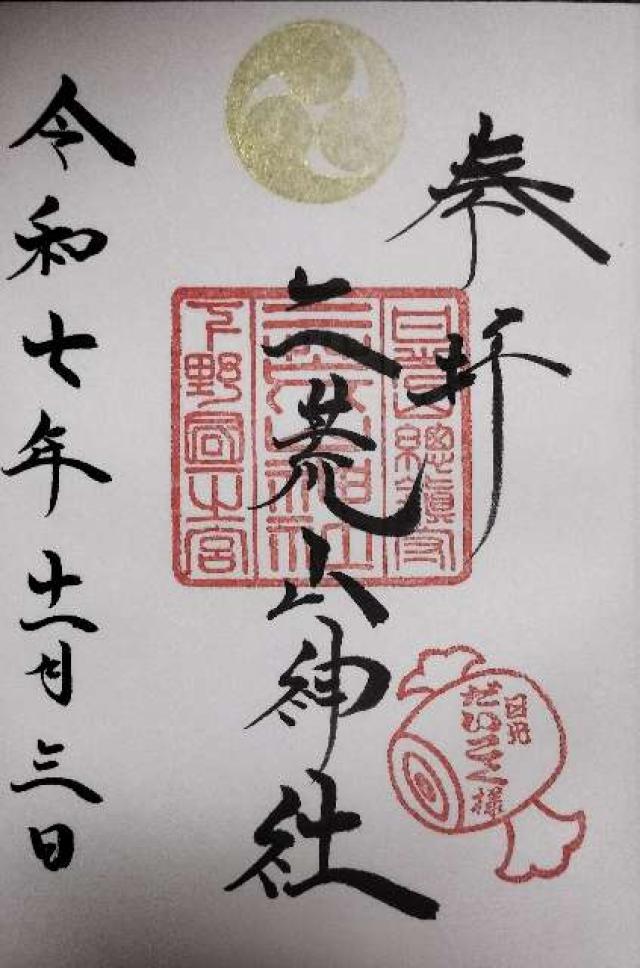 奉拝
日光山總鎮守
二荒山神社
下野國一之宮
二荒山神社
日光
だいこく様
令和七年十一月三日